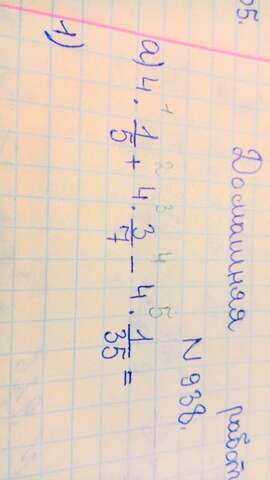 05.
Домашняя работ
N 938.
а) 4 · 1/5 + 4 · 3/7 − 4 · 1/35 =
1 2 3 4 5
1)